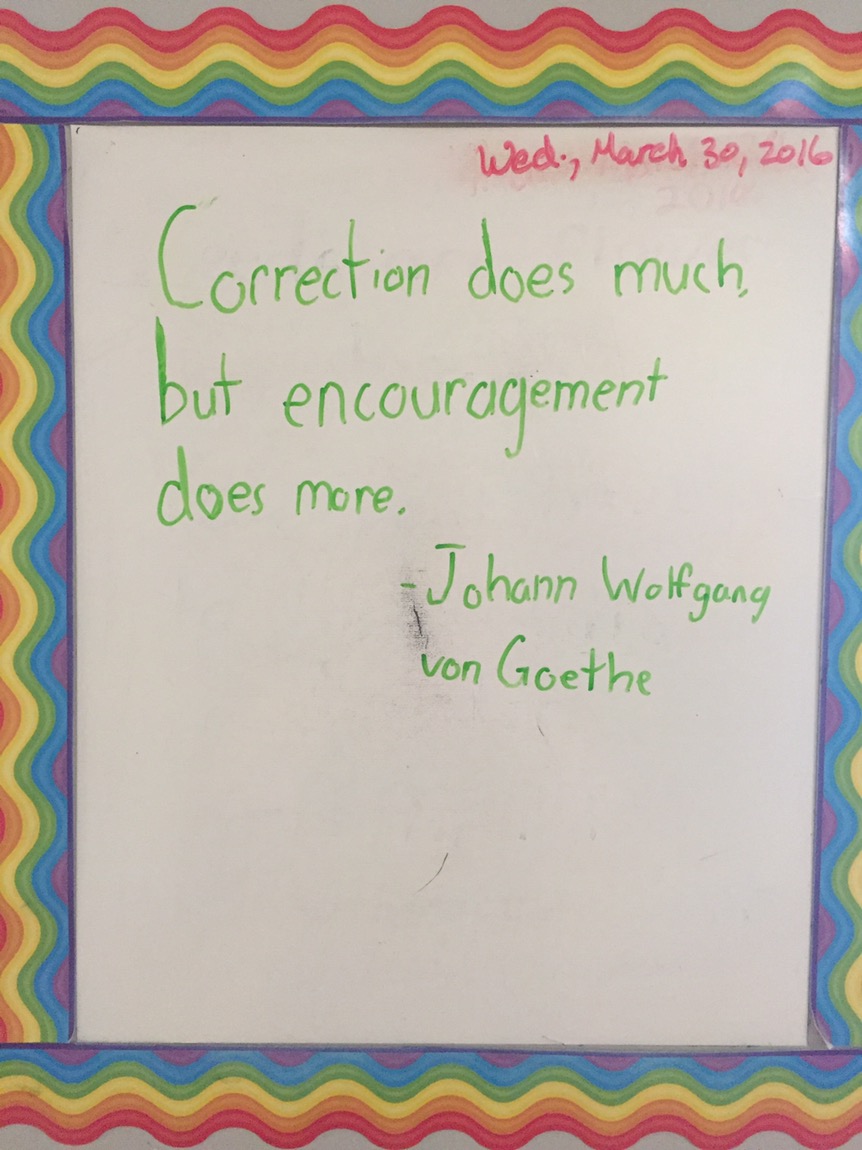 Wed., March 30, 2016
Correction does much,
but encouragement
does more.
-Johann Wolfgang
von Goethe